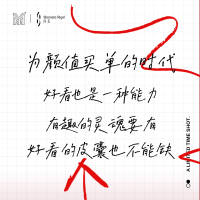 为颜值买单的时代
好看也是一种能力
有趣的灵魂要有
好看的皮囊也不能缺
A LIMITED TIME SHOT.